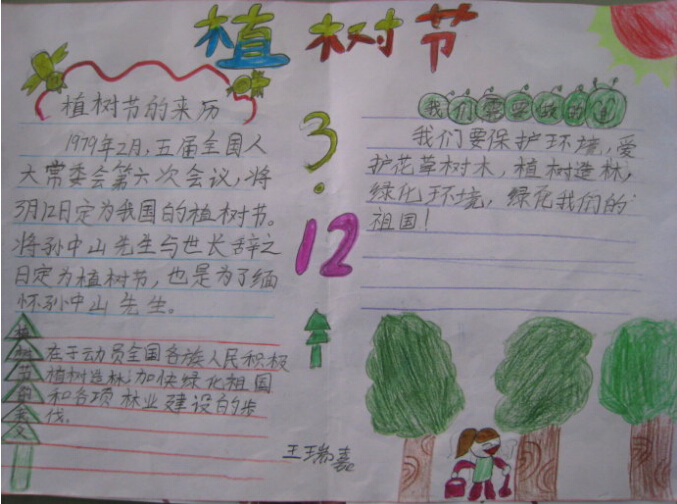 植树节
植树节的来历
1979年2月,五届全国人
大常委会第六次会议,将
3月12日定为我国的植树节。
将孙中山先生与世长辞之
日定为植树节,也是为了缅
怀孙中山先生。
植树节的意义
在于动员全国各族人民积极
植树造林,加快绿化祖国
和各项林业建设的步
伐.
3.12
我们需要做的是
我们要保护环境,爱
护花草树木,植树造林,
绿化环境,绿化我们的
祖国!
王瑞嘉